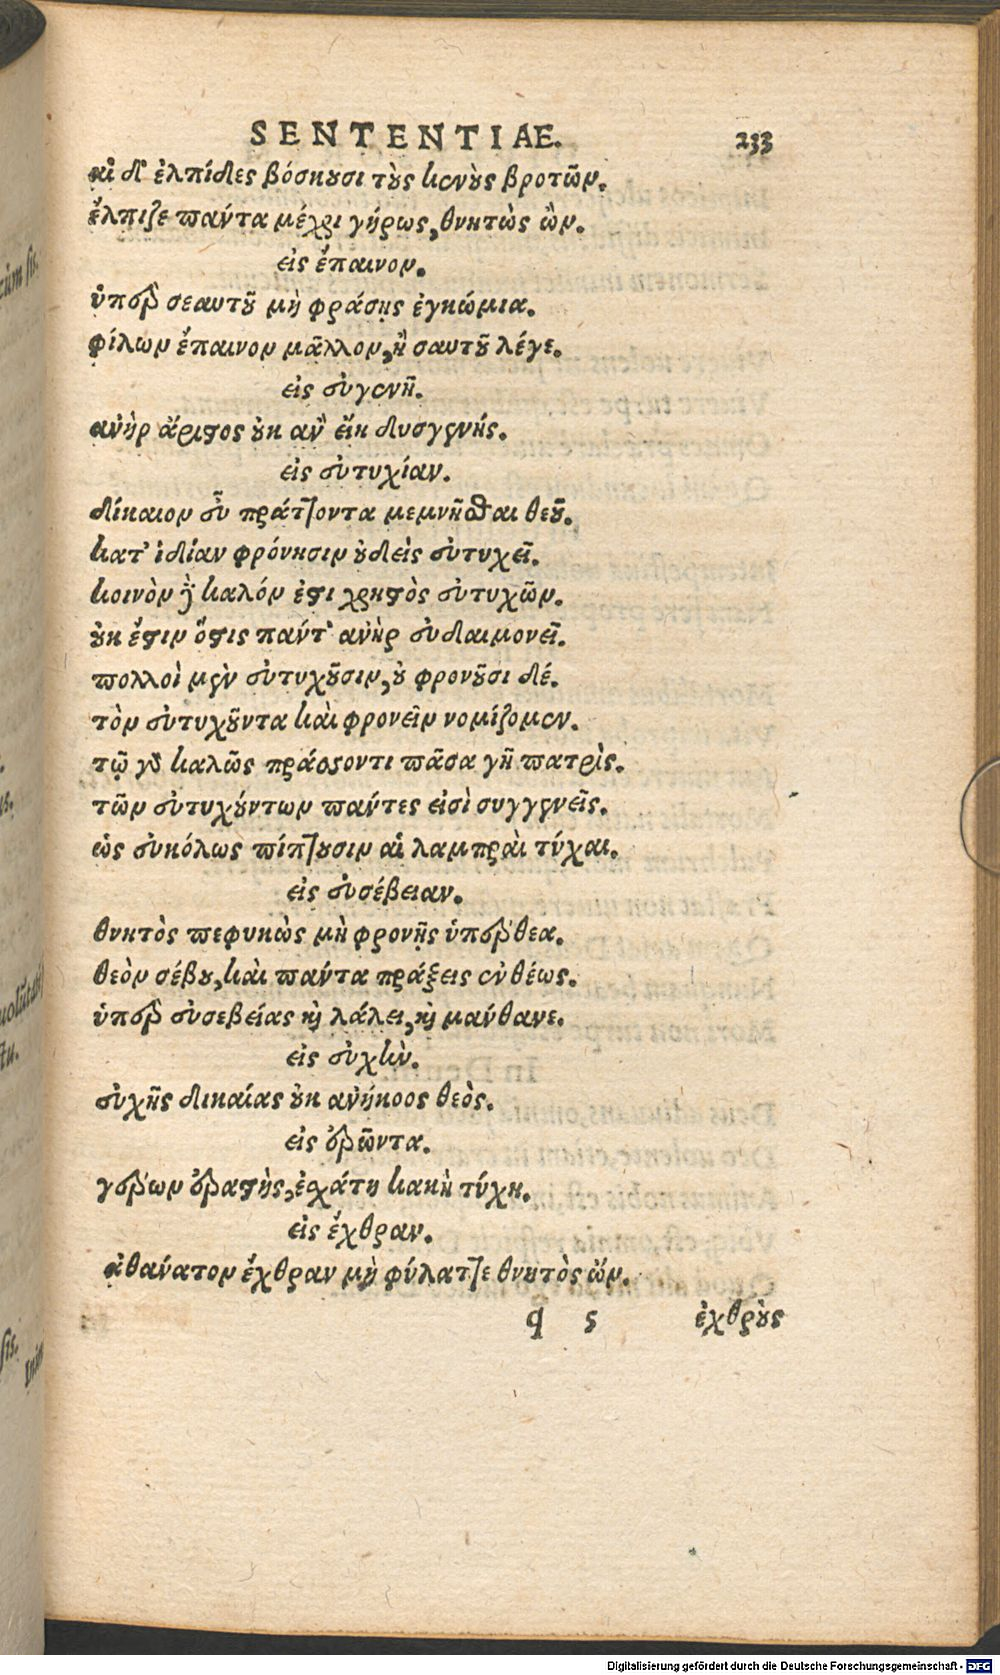 SENTENTIAE. 233
αἱ δ' ἐλπίδες βόσκουσι τοὺς κενοὺς βροτῶν.
ἔλπιζε πάντα μέχρι γήρως, θνητὸς ὤν.
εἰς ἔπαινον.
ὑπὲρ σεαυτοῦ μὴ φράσῃς ἐγκώμια.
φίλων ἔπαινον μᾶλλον, ἢ σαυτοῦ λέγε.
εἰς εὐγενῆ.
ἀνὴρ ἄριστος οὐκ ἂν εἴη δυσγενής.
εἰς εὐτυχίαν.
δίκαιον εὖ πράττοντα μεμνῆσθαι θεοῦ.
κατ' ἰδίαν φρόνησιν οὐδεὶς εὐτυχεῖ.
κοινὸν γὰρ καλόν ἐστι χρηστὸς εὐτυχῶν.
οὐκ ἔστιν ὅστις πάντ' ἀνὴρ εὐδαιμονεῖ.
πολλοὶ μὲν εὐτυχοῦσιν, οὐ φρονοῦσι δέ.
τὸν εὐτυχοῦντα καὶ φρονεῖν νομίζομεν.
τῷ γὰρ καλῶς πράσσοντι πᾶσα γῆ πατρὶς.
τῶν εὐτυχούντων πάντες εἰσὶ συγγενεῖς.
ὡς εὐκόλως πίπτουσιν αἱ λαμπραὶ τύχαι.
εἰς εὐσέβειαν.
θνητὸς πεφυκὼς μὴ φρονῇς ὑπέρθεα.
θεὸν σέβου, καὶ πάντα πράξεις ἐνθέως.
ὑπὲρ εὐσεβείας καὶ λάλει, καὶ μάνθανε.
εἰς εὐχὴν.
εὐχῆς δικαίας οὐκ ἀνήκοος θεὸς.
εἰς ἐρῶντα.
γέρων ἐραστὴς, ἐσχάτη κακὴ τύχη.
εἰς ἔχθραν.
ἀθάνατον ἔχθραν μὴ φύλαττε θνητὸς ὤν.
q 5 ἐχθροὺς
Digitalisierung gefördert durch die Deutsche Forschungsgemeinschaft - DFG